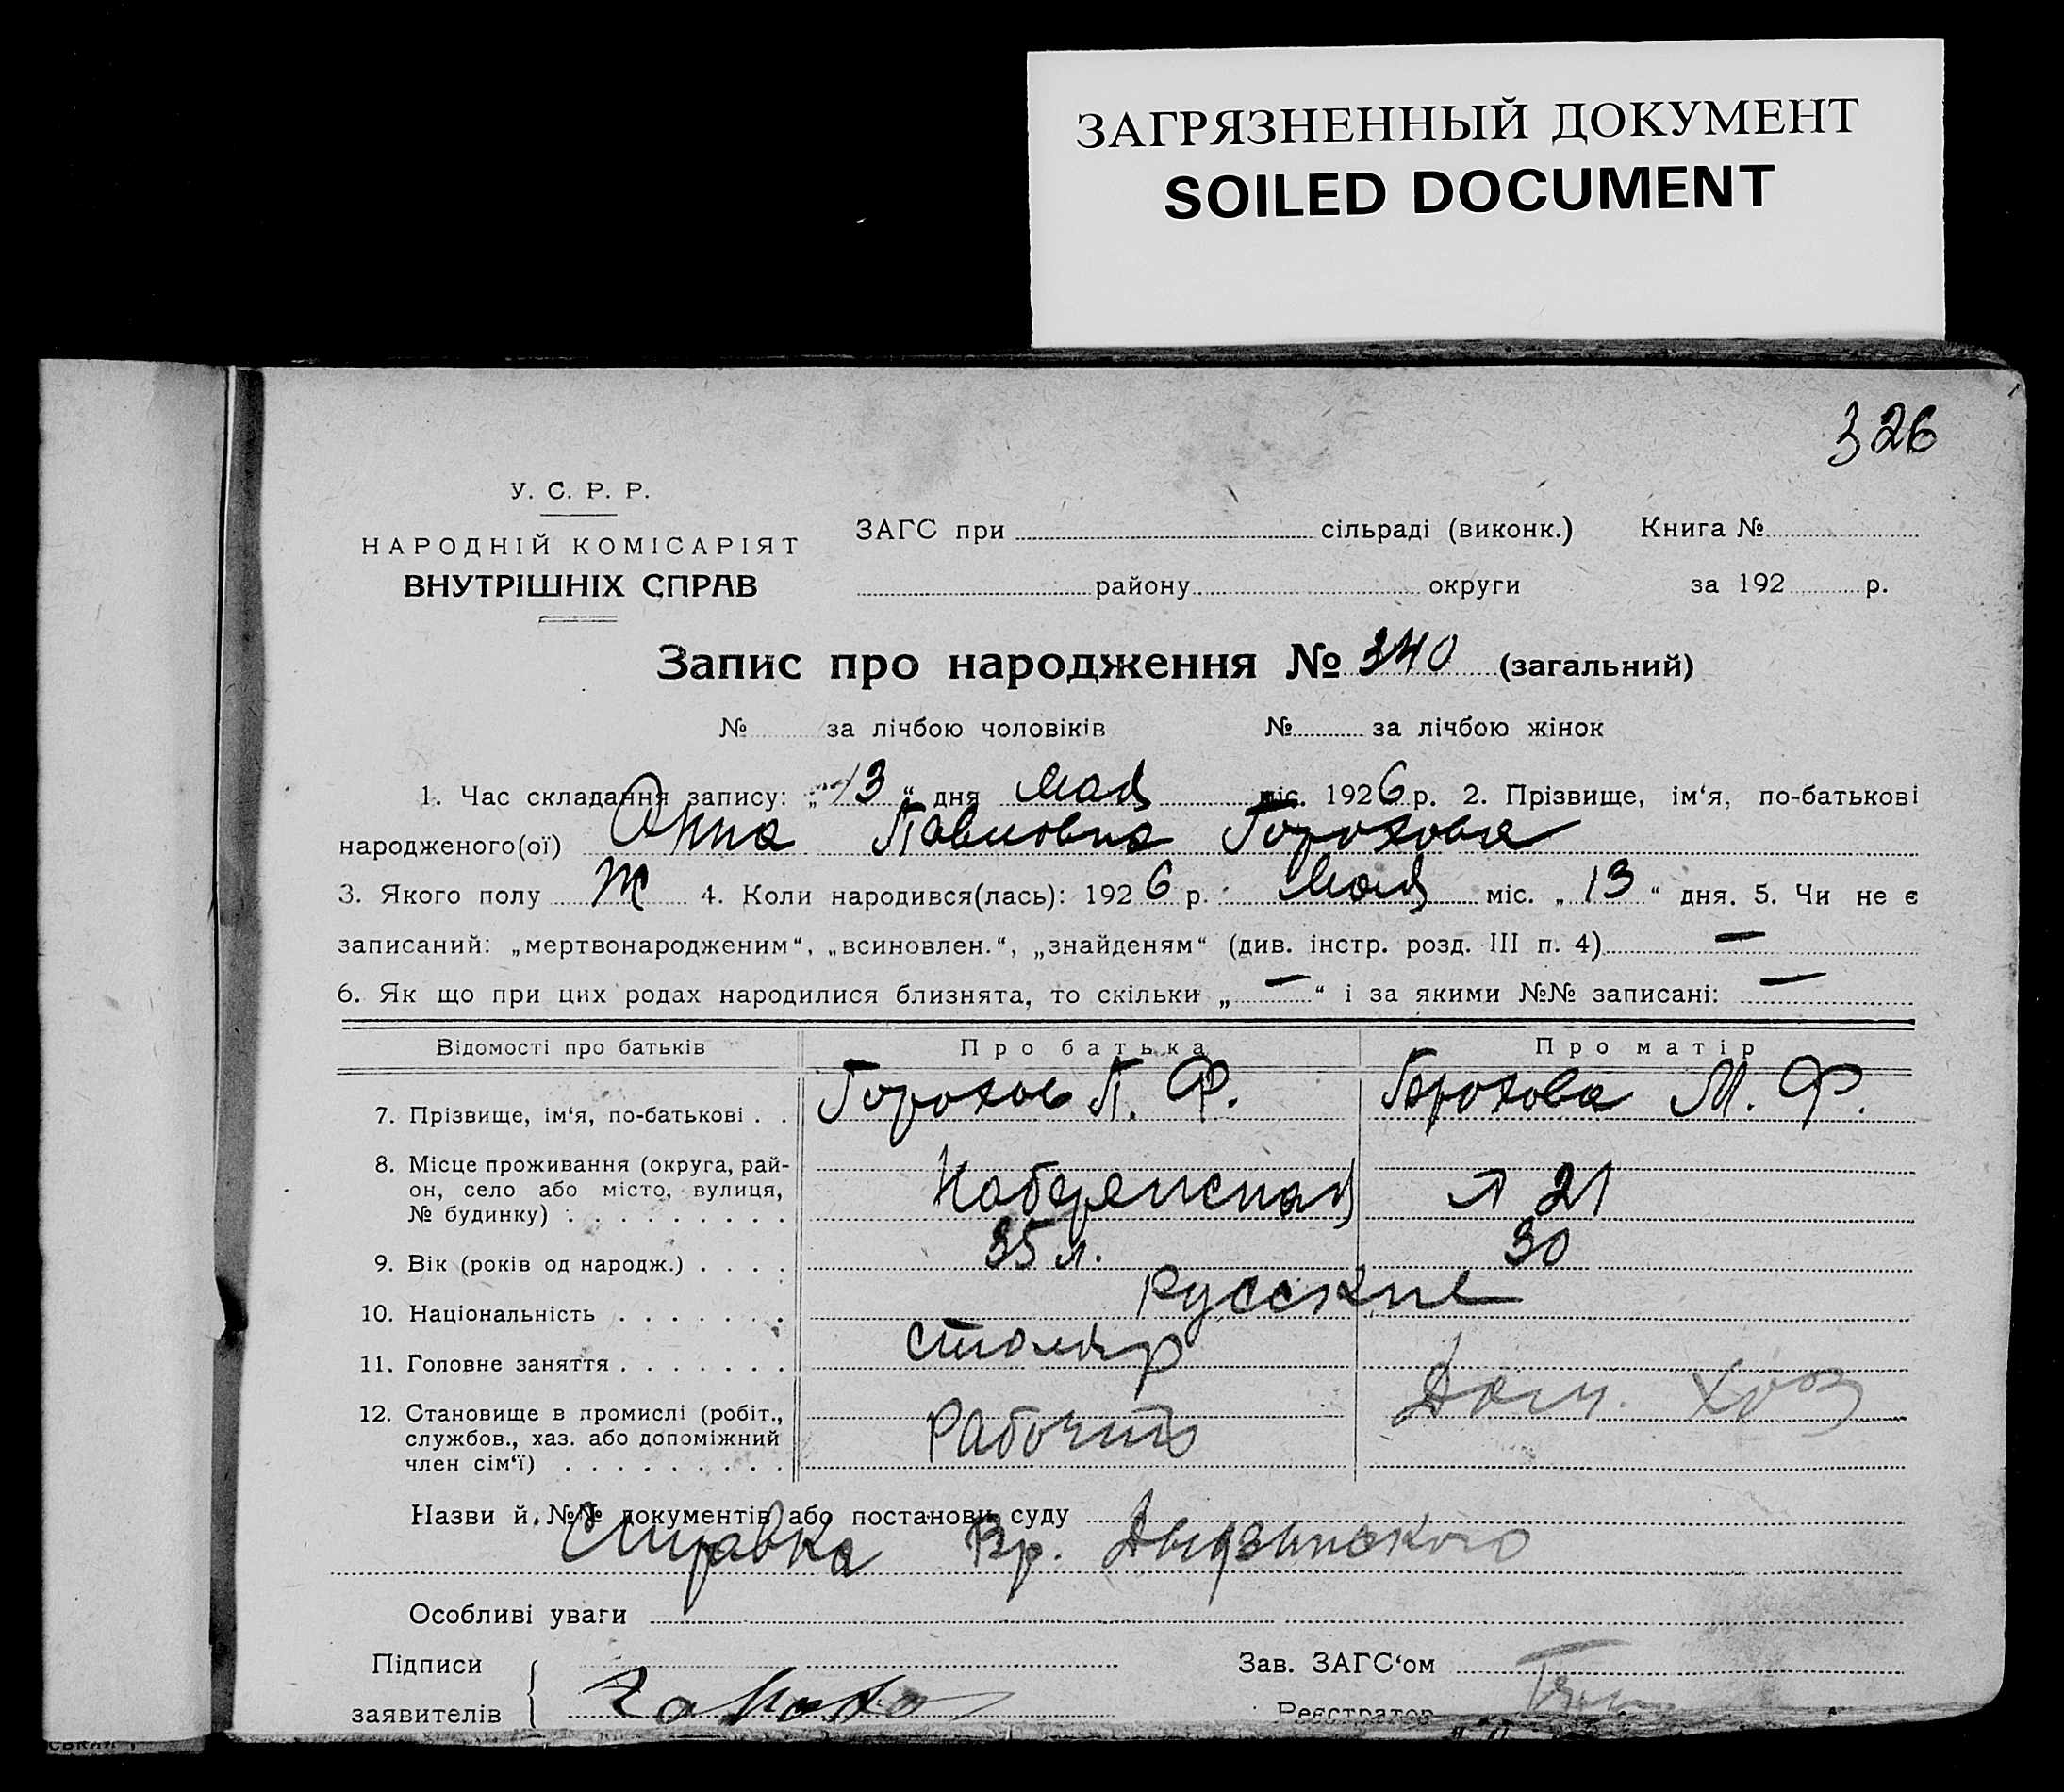 ЗАГРЯЗНЕННЫЙ ДОКУМЕНТ
SOILED DOCUMENT
326
У. С. Р. Р.
НАРОДНІЙ КОМІСАРІЯТ
ВНУТРІШНІХ СПРАВ
ЗАГС при сільраді (виконк.) Книга №
району округи за 192 р.
Запис про народження № 340 (загальний)
№ за лічбою чоловіків № за лічбою жінок
1. Час складання запису: „13“ дня мая міс. 1926 р. 2. Прізвище, ім‘я, по-батькові
народженого(ої) Анна Павловна Горохова
3. Якого полу ж 4. Коли народився(лась): 1926 р. мая міс. „13“ дня. 5. Чи не є
записаний: „мертвонародженим“, „всиновлен.“, „знайденям“ (див. інстр. розд. III п. 4) —
6. Як що при цих родах народилися близнята, то скільки „—“ і за якими №№ записані: —
Відомості про батьків Про батька Про матір
7. Прізвище, ім‘я, по-батькові . . Горохов П. Ф. Горохова М. Ф.
8. Місце проживання (округа, рай-
он, село або місто, вулиця,
№ будинку) Набережная 21
9. Вік (років од народж.) 35 л. 30
10. Національність русские
11. Головне заняття столяр
12. Становище в промислі (робіт.,
службов., хаз. або допоміжний
член сім‘ї) рабочий Дом. хоз
Назви й №№ документів або постанови суду
Справка Вр.
Особливі уваги
Підписи
заявителів
Зав. ЗАГС‘ом
Реєстратор